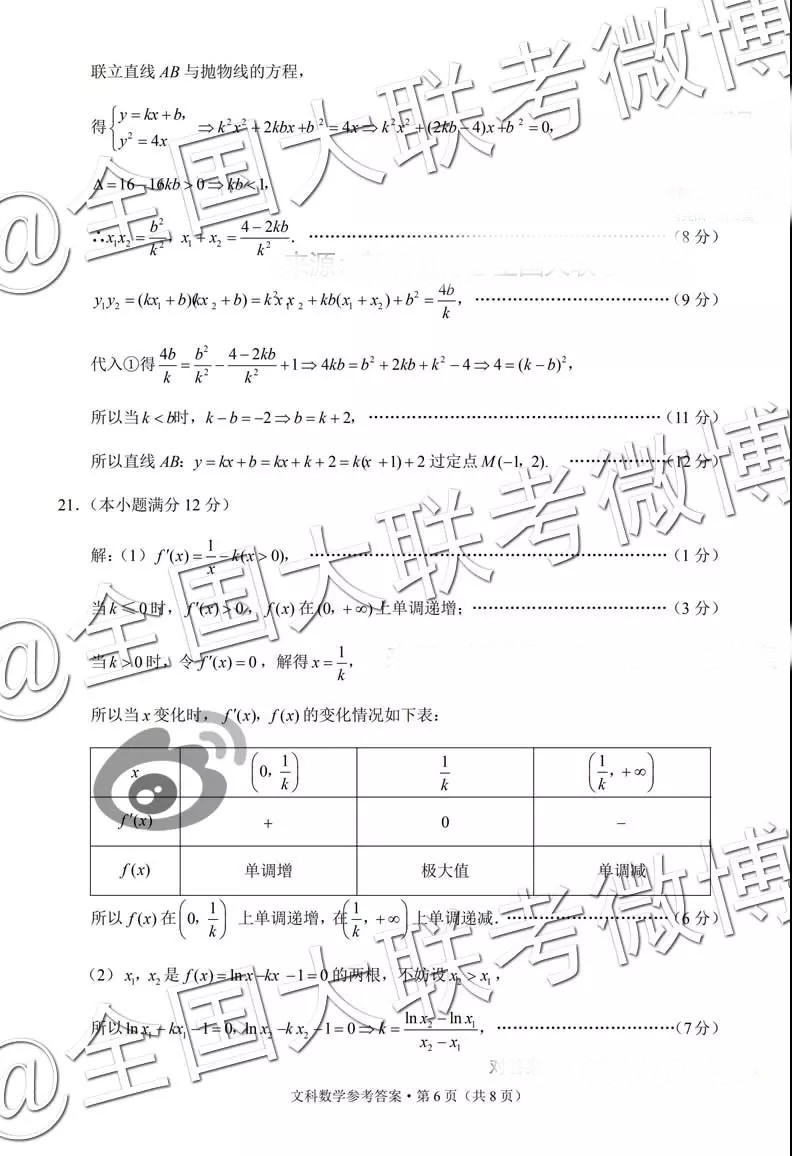 联立直线 AB 与抛物线的方程，
得{y = kx + b, y² = 4x ⇒ k²x² + 2kbx + b² = 4x ⇒ k²x² + (2kb − 4)x + b² = 0，
Δ = 16 − 16kb > 0 ⇒ kb < 1，
∴ x₁x₂ = b²/k²，x₁ + x₂ = (4 − 2kb)/k². ……（8 分）
y₁y₂ = (kx₁ + b)(kx₂ + b) = k²x₁x₂ + kb(x₁ + x₂) + b² = 4b/k，……（9 分）
代入①得 4b/k = b²/k² − (4 − 2kb)/k² + 1 ⇒ 4kb = b² + 2kb + k² − 4 ⇒ 4 = (k − b)²，
所以当 k < b 时，k − b = −2 ⇒ b = k + 2，……（11 分）
所以直线 AB：y = kx + b = kx + k + 2 = k(x + 1) + 2 过定点 M(−1，2). ……（12 分）
21．（本小题满分 12 分）
解：（1）f′(x) = 1/x − k(x > 0)，……（1 分）
当 k ≤ 0 时，f′(x) > 0，f(x) 在 (0，+∞) 上单调递增；……（3 分）
当 k > 0 时，令 f′(x) = 0，解得 x = 1/k，
所以当 x 变化时，f′(x)，f(x) 的变化情况如下表：
x (0，1/k) 1/k (1/k，+∞)
f′(x) + 0 −
f(x) 单调增 极大值 单调减
所以 f(x) 在 (0，1/k) 上单调递增，在 (1/k，+∞) 上单调递减. ……（6 分）
（2）x₁，x₂ 是 f(x) = ln x − kx − 1 = 0 的两根，不妨设 x₂ > x₁，
所以 ln x₁ − kx₁ − 1 = 0，ln x₂ − kx₂ − 1 = 0 ⇒ k = (ln x₂ − ln x₁)/(x₂ − x₁)，……（7 分）
文科数学参考答案·第 6 页（共 8 页）
@全国大联考微博
@全国大联考微博
@全国大联考微博